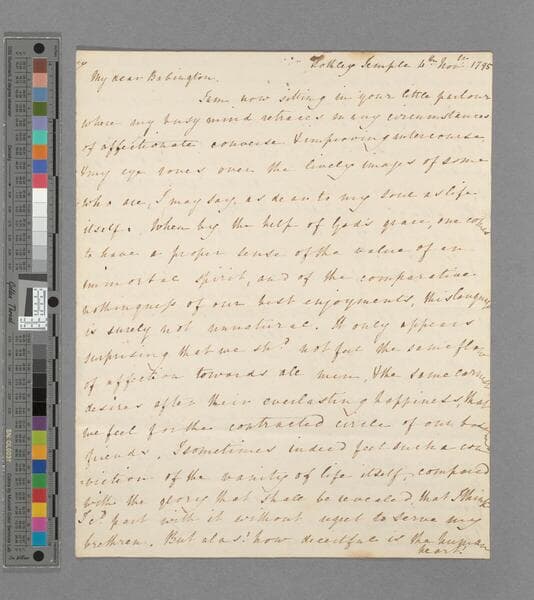 Rothley Temple 4th Novr. 1795
My dear Babington.
I am now sitting in your little parlour
where my busy mind retraces many circumstances
of affectionate converse & improving intercourse
& my eye roves over the lively images of some
who are, I may say, as dear to my soul as life
itself. When by the help of God's grace, one comes
to have a proper sense of the value of an
immortal spirit, and of the comparative
nothingness of our best enjoyments, this language
is surely not unnatural. It only appears
surprising that we shd. not feel the same flow
of affection towards all men, & the same earnest
desires after their everlasting happiness, that
we feel for the contracted circle of our bosom
friends. I sometimes indeed feel such a con
viction of the vanity of life itself, compared
with the glory that shall be revealed, that I think
I cd. part with it without regret to serve my
brethren. But alas! how deceitful is the human
heart!